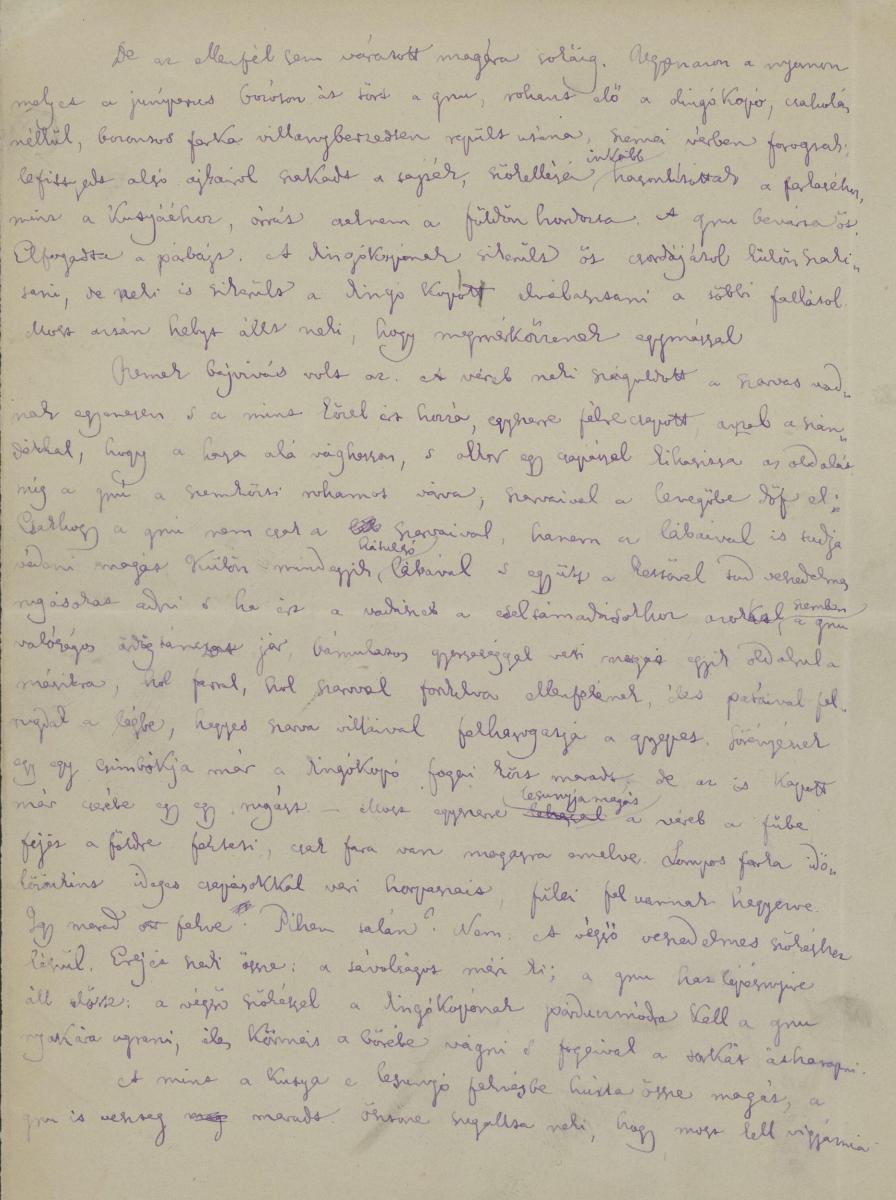 De az ellenfél sem váratott magára sokáig. Ugyanazon a nyomon
melyet a juniperus bozóton át tört a gnu, rohant elő a dingókopó, csaholás
nélkül, bozontos farka villanyberzedten repült utána, szemei vérben forogtak,
lefittyedt alsó ajkairól szakadt a tajték, szökellései inkább hasonlítottak a farkaséhoz,
mint a kutyáéhoz, órrát csaknem a földön hordozta. A gnu bevárta őt.
Elfogadta a párbajt. A dingókopónak sikerült őt csordájától külön szakí-
tani, de neki is sikerült a dingó kopót elválasztani a többi falkától.
Most aztán helyt állt neki, hogy megmérkőzzenek egymással
Remek bajvivás volt az. A véreb neki száguldott a szarvas vad-
nak egyenesen s a mint közel ért hozzá, egyszerre félre csapott, azzal a szán-
dékkal, hogy a hasa alá vághasson, s akkor egy csapással kihasítsa az oldalát
míg a gnu a szemközti rohamot várva, szarvaival a levegőbe döf el:
Csakhogy a gnu nem csak a szarvaival, hanem a lábaival is tudja
védeni magát külön mindegyik hátulsó lábával s együtt a kettővel tud veszedelmes
rugásokat adni s ha ért a vadászeb a cseltámadásokhoz azokkal szemben a gnu
valóságos ördögtánczot jár, bámulatos gyorsasággal veti magát egyik oldalrul a
másikra, hol farral, hol szarvval fordulva ellenfelének, éles patáival fel-
rugdal a légbe, hegyes szarva villáival felhasogatja a gyepet. Sörényének
egy egy csimbókja már a dingókopó fogai közt maradt, de az is kapott
már cserébe egy egy rugást – Most egyszerre lesunyja magát a véreb a fűbe
fejét a földre fekteti, csak fara van magasra emelve. Lompos farka idő-
közönkint ideges csapásokkal veri horpaszait, fülei fel vannak hegyezve.
Így marad fekve. Pihen talán? Nem. A végső veszedelmes szökéshez
készül. Erejét szedi össze: a távolságot méri ki; a gnu hat lépésnyire
áll előtte: a végső szökéssel a dingókopónak párduczmódra kell a gnu
nyakára ugrani, éles körmeit a bőrébe vágni s fogaival a torkát átharapni.
A mint a kutya e lesunyó fekvésbe húzta össze magát, a
gnu is veszteg maradt. Ösztöne sugallta neki, hogy most kell vigyáznia